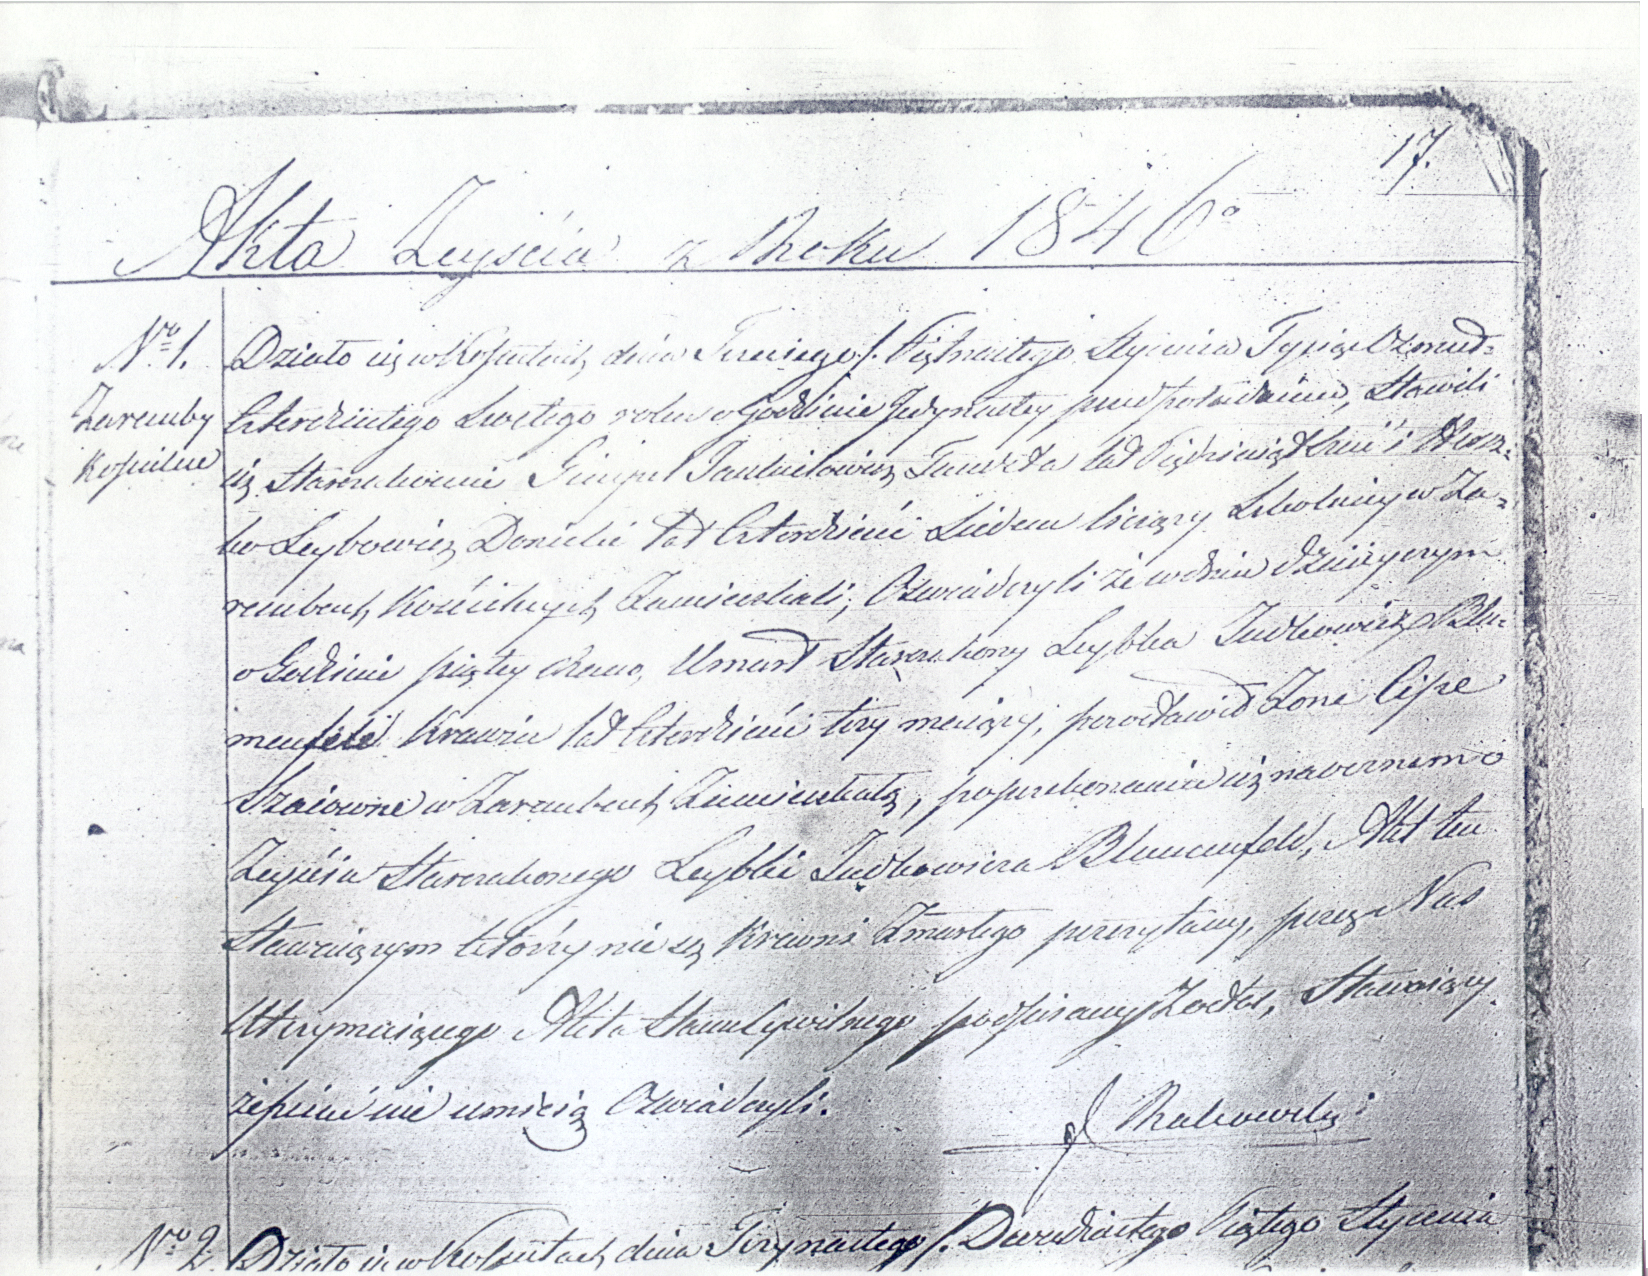 17.
Akta Zeyścia z Roku 1846o
No 1.
Zaremby
Kościelne
Działo się w dnia Trzeciego /. Piętnastego Stycznia Tysiąc Ozmset
Czterdziestego Szustego roku o Godzinie Jedynastey przed południem, Stawili
się Starozakonni Lat Pięćdziesiąt i
ko Leybowicz Lat Czterdzieści Liczący Szkolnicy w Za-
rembach Kościelnych Zamieszkali; Ozwiadczyli że w dniu dzisieyszym
o Godzinie piątey zrana, Umarł Starozakony Leybka Judkowicz Blu-
menfeld Krawiec lat Czterdzieści trzy maiący, pozostawił Żone Cipe
Szaiowne w Zarembach Zamieszkałą, po przekonaniu się naocznem o
Zeyściu Starozakonego Leybki Judkowicza Blumenfeld, Akt ten
Stawaiącym którzy nie są Krewni Zmarłego przeczytany, przez Nas
Utrzymuiącego Akta Stanu Cywilnego podpisany Został, Stawaiący
że pisać nie umieią Ozwiadczyli.
J Rakowski
No 2
Działo się w dnia Trzynastego /. Dwudziestego Piątego Stycznia